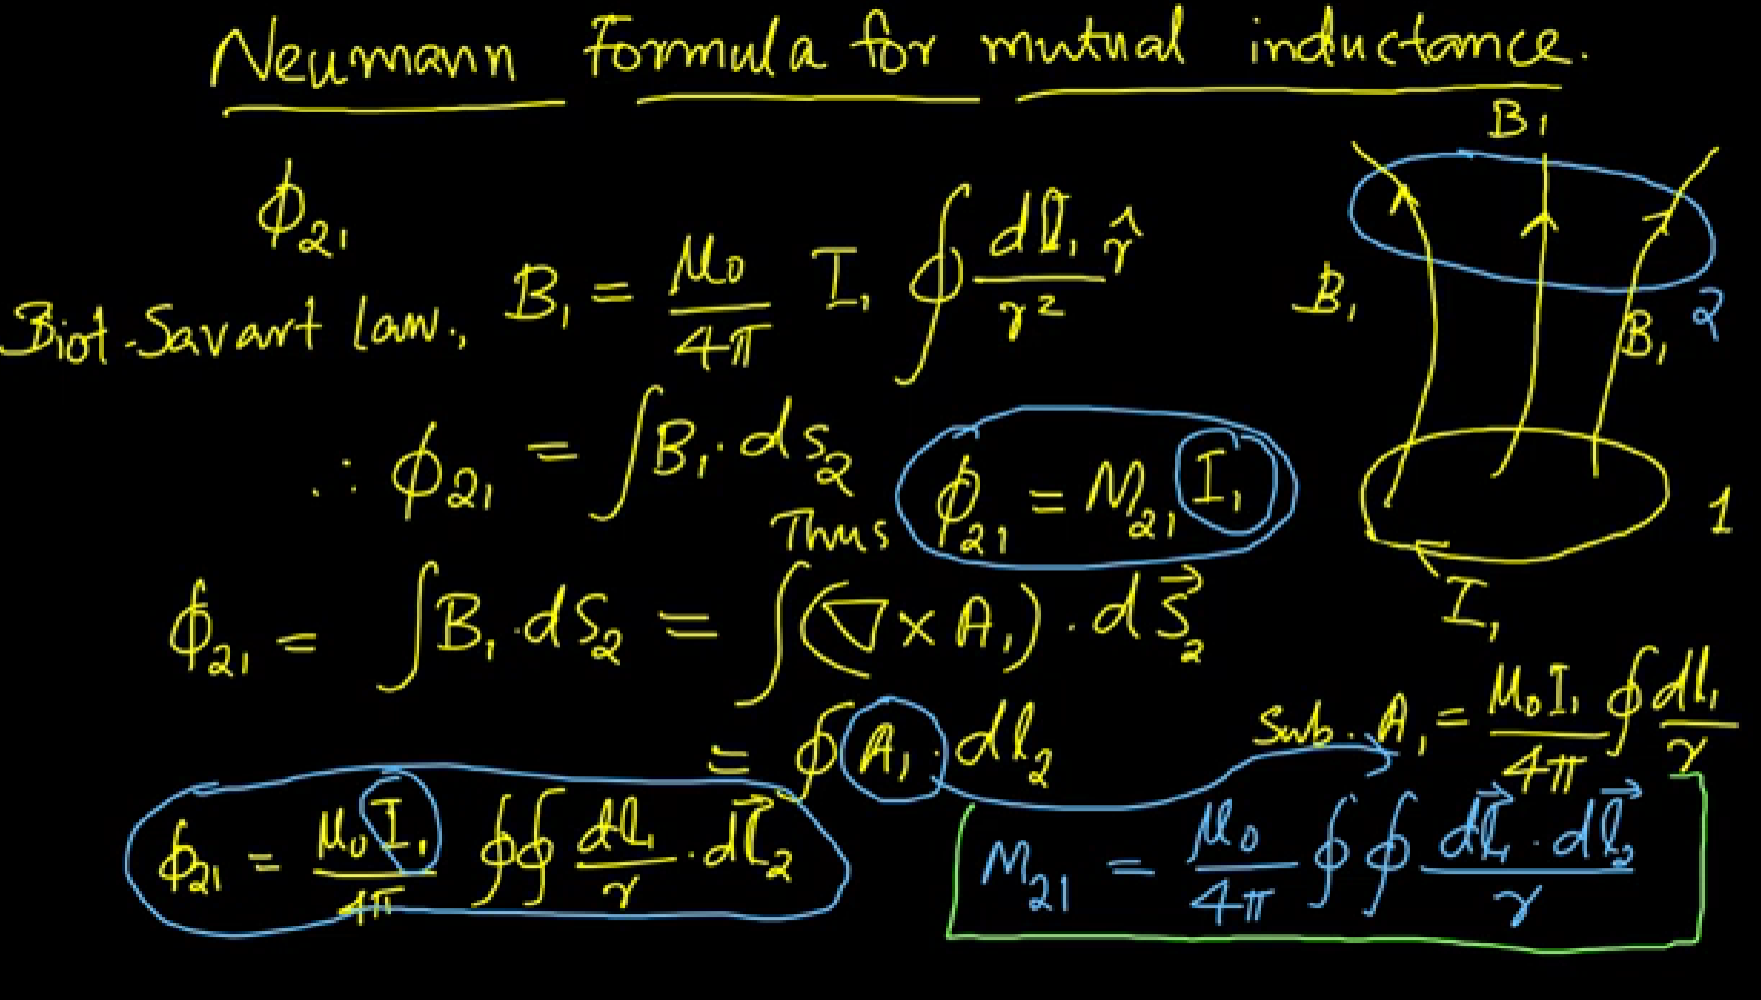 Neumann Formula for mutual inductance.
B₁
ϕ₂₁
Biot-Savart law., B₁ = μ₀/4π I₁ ∮ dl₁ r̂/r²
B₁
B₁
2
∴ ϕ₂₁ = ∫B₁·ds₂
Thus ϕ₂₁ = M₂₁ I₁
1
I₁
ϕ₂₁ = ∫B₁·dS₂ = ∫(∇×A₁)·dS⃗₂
= ∮A₁·dl₂
Sub. A₁ = μ₀I₁/4π ∮ dl₁/r
ϕ₂₁ = μ₀I₁/4π ∮∮ dl₁/r · dl⃗₂
M₂₁ = μ₀/4π ∮∮ dl⃗₁·dl⃗₂/r